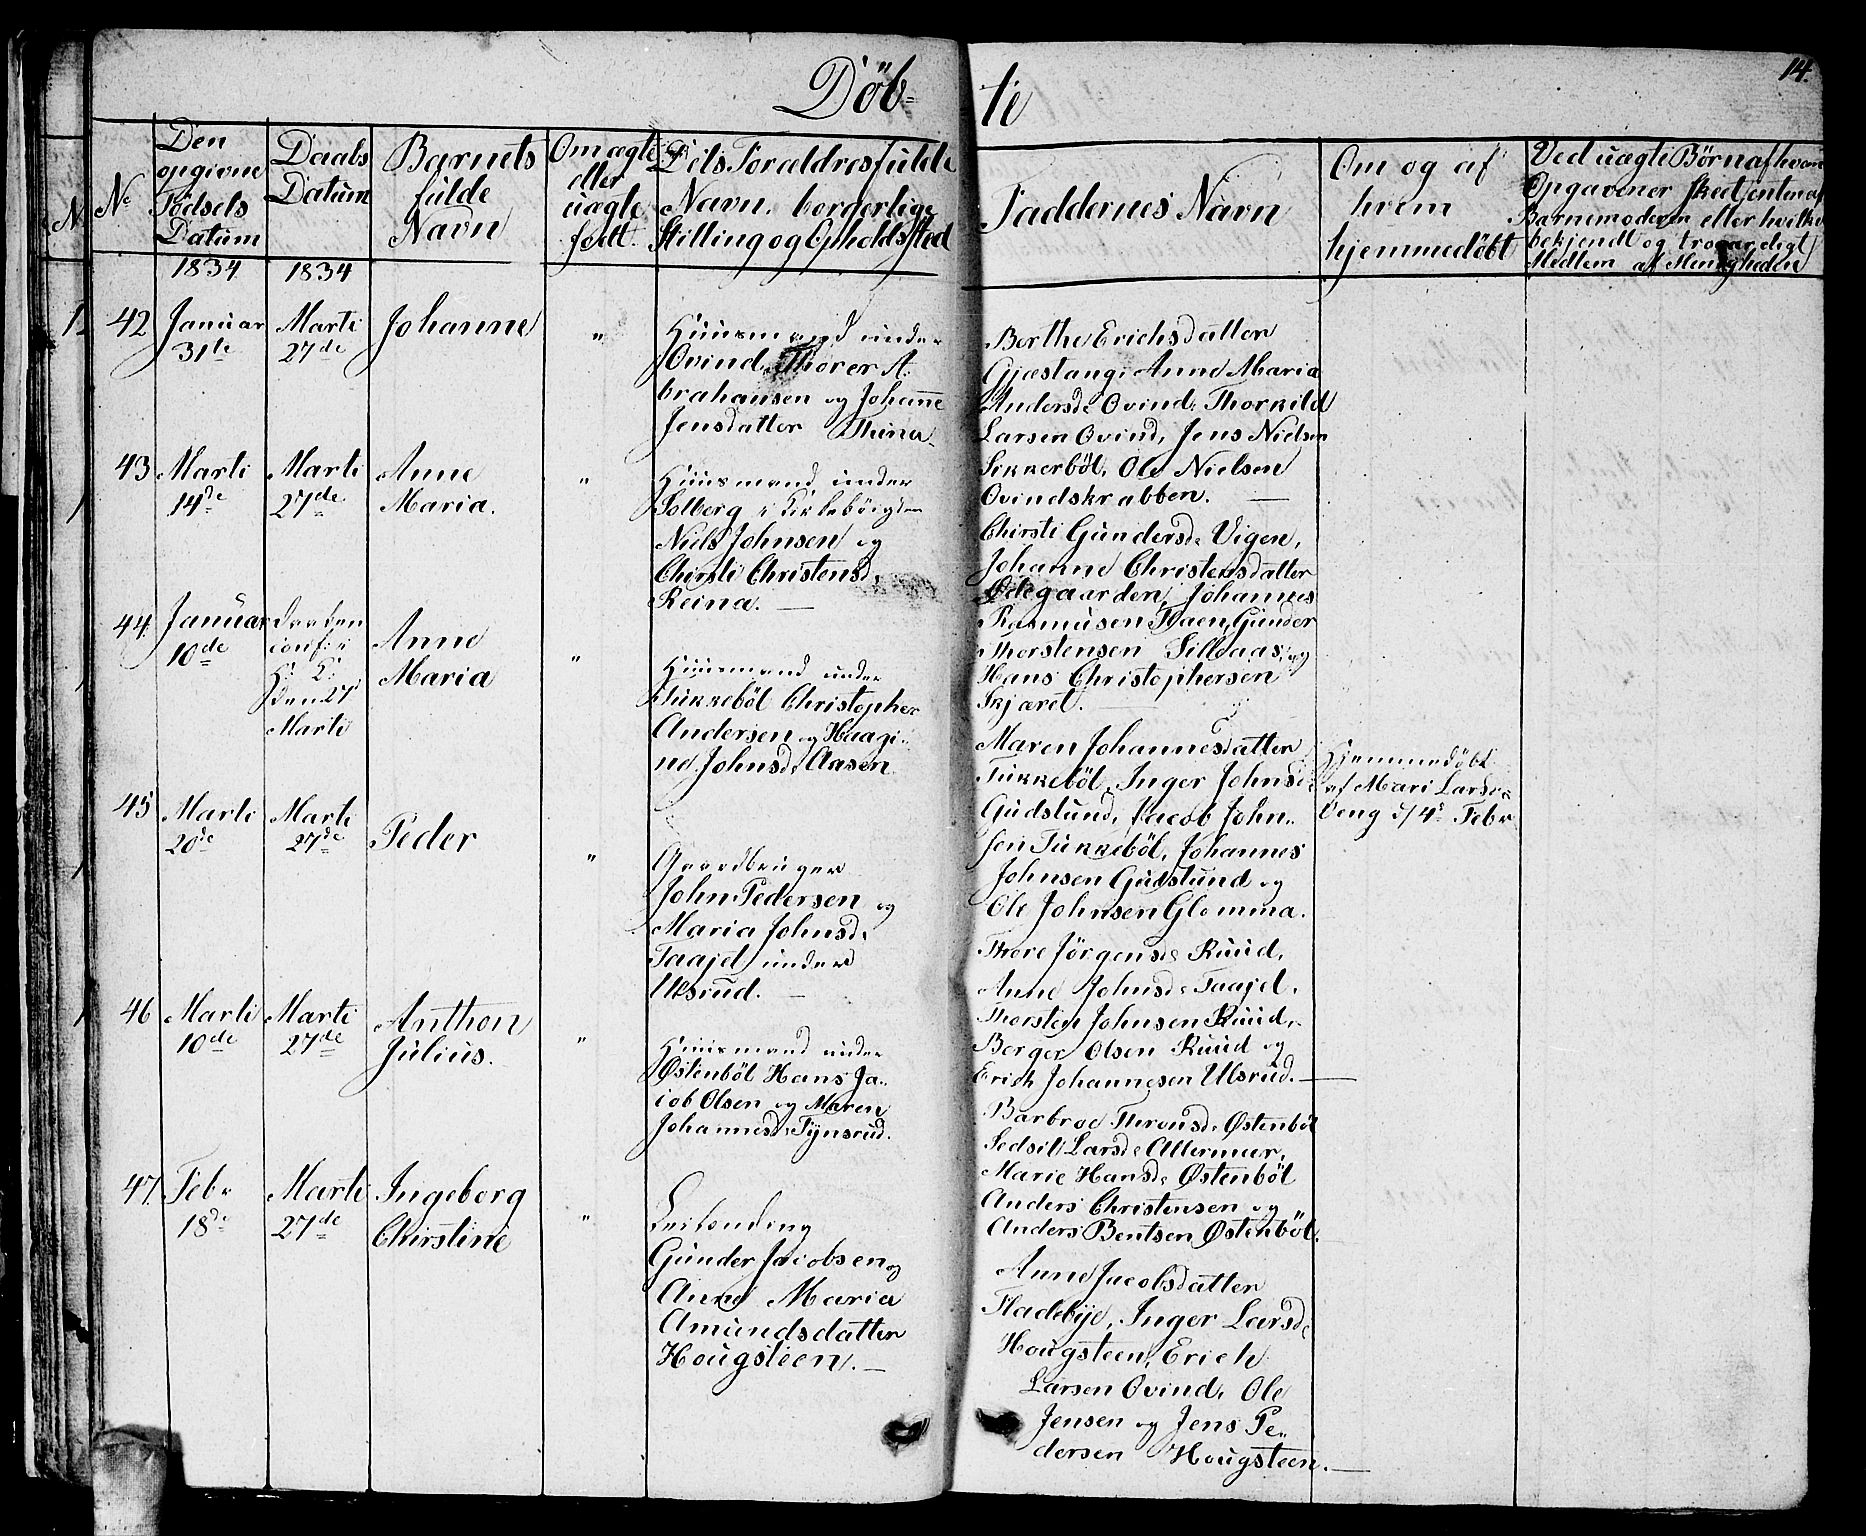 Døb=
te
14.
Den
opgivne
Fødsels
Datum
Daabs
Datum
Barnets
fulde
Navn
Om ægte
eller
uægte
født.
Dets Forældres fulde
Navn, borgerlige
Stilling og Opholdssted
Faddernes Navn
Om og af
hvem
hjemmedøbt
Ved uægte Børn af hvem
Opgavener skeet enten af
Barnemoderen eller hvilket
bekjendt og troværdigt
Medlem af Menigheden
No
1834
1834
42
Januar
31te
Marti
27de
Johanne
"
Huusmand under
Ovind, Thorer A.
brahamsen og Johanne
Jensdatter
Berthe Erichsdatter
Gjæstang, Anne Maria
Andersd: Ovind, Thorkild
Larsen Ovind, Jens Nielsen
Sikkerböl, Ole Nielsen
Ovindskrabben.
43
Marti
14de
Marti
27de
Anne
Maria.
"
Huusmand under
Solberg i Kirkebøigden
Niels Johnsen og
Chirsti Christensd:
Reina.
Chirsti Gundersd: Vigen,
Johanne Christensdatter
Ødegaarden, Johannes
Rasmusen Gunder
Thorstensen Lilleaas, og
Hans Christophersen
Skjæret.
44.
Januar
10de
conf: i
H: K:
den 27
Marti
Anne
Maria
"
Huusmand under
Tukkeböl Christopher
Andersen og Haagi-
ne Johnsd: Aasen
Maren Johannesdatter
Tukkeböl, Inger Johnsd:
Gudslund, Jacob John-
sen Tukkeböl, Johannes
Johnsen Gudslund og
Ole Johnsen Glomma.
Hjemmedøbt
af Mari Larsd:
Eeng d/ 4de Febr
45
Marti
20de
Marti
27de
Peder
"
Gaardbruger
John Pedersen og
Maria Johnsd:
Taajet under
Ulsrud.
Thore Jörgensd: Ruud,
Anne Johnsd: Taajet,
Thorsten Johnsen Ruud,
Berger Olsen Ruud og
Erich Johannesen Ulsrud.
46
Marti
10de
Marti
27de
Anthon
Julius.
"
Huusmand under
Østenböl Hans Ja-
cob Olsen og Maren
Johannesd: Tynsrud.
Barbroe Thronsd: Østenböl
Sedsil Larsd: Allermur,
Marie Hansd: Østenböl
Anders Christensen og
Anders Bentsen Østenböl.
47.
Febr
18de
Marti
27de
Ingeborg
Chirstine
"
Leilænding
Gunder Jacobsen og
Anne Maria
Amundsdatter
Hougsteen.
Anne Jacobsdatter
Fladebye, Inger Larsd:
Hougsteen, Erich
Larsen Ovind, Ole
Jensen og Jens Pe-
dersen Hougsteen.